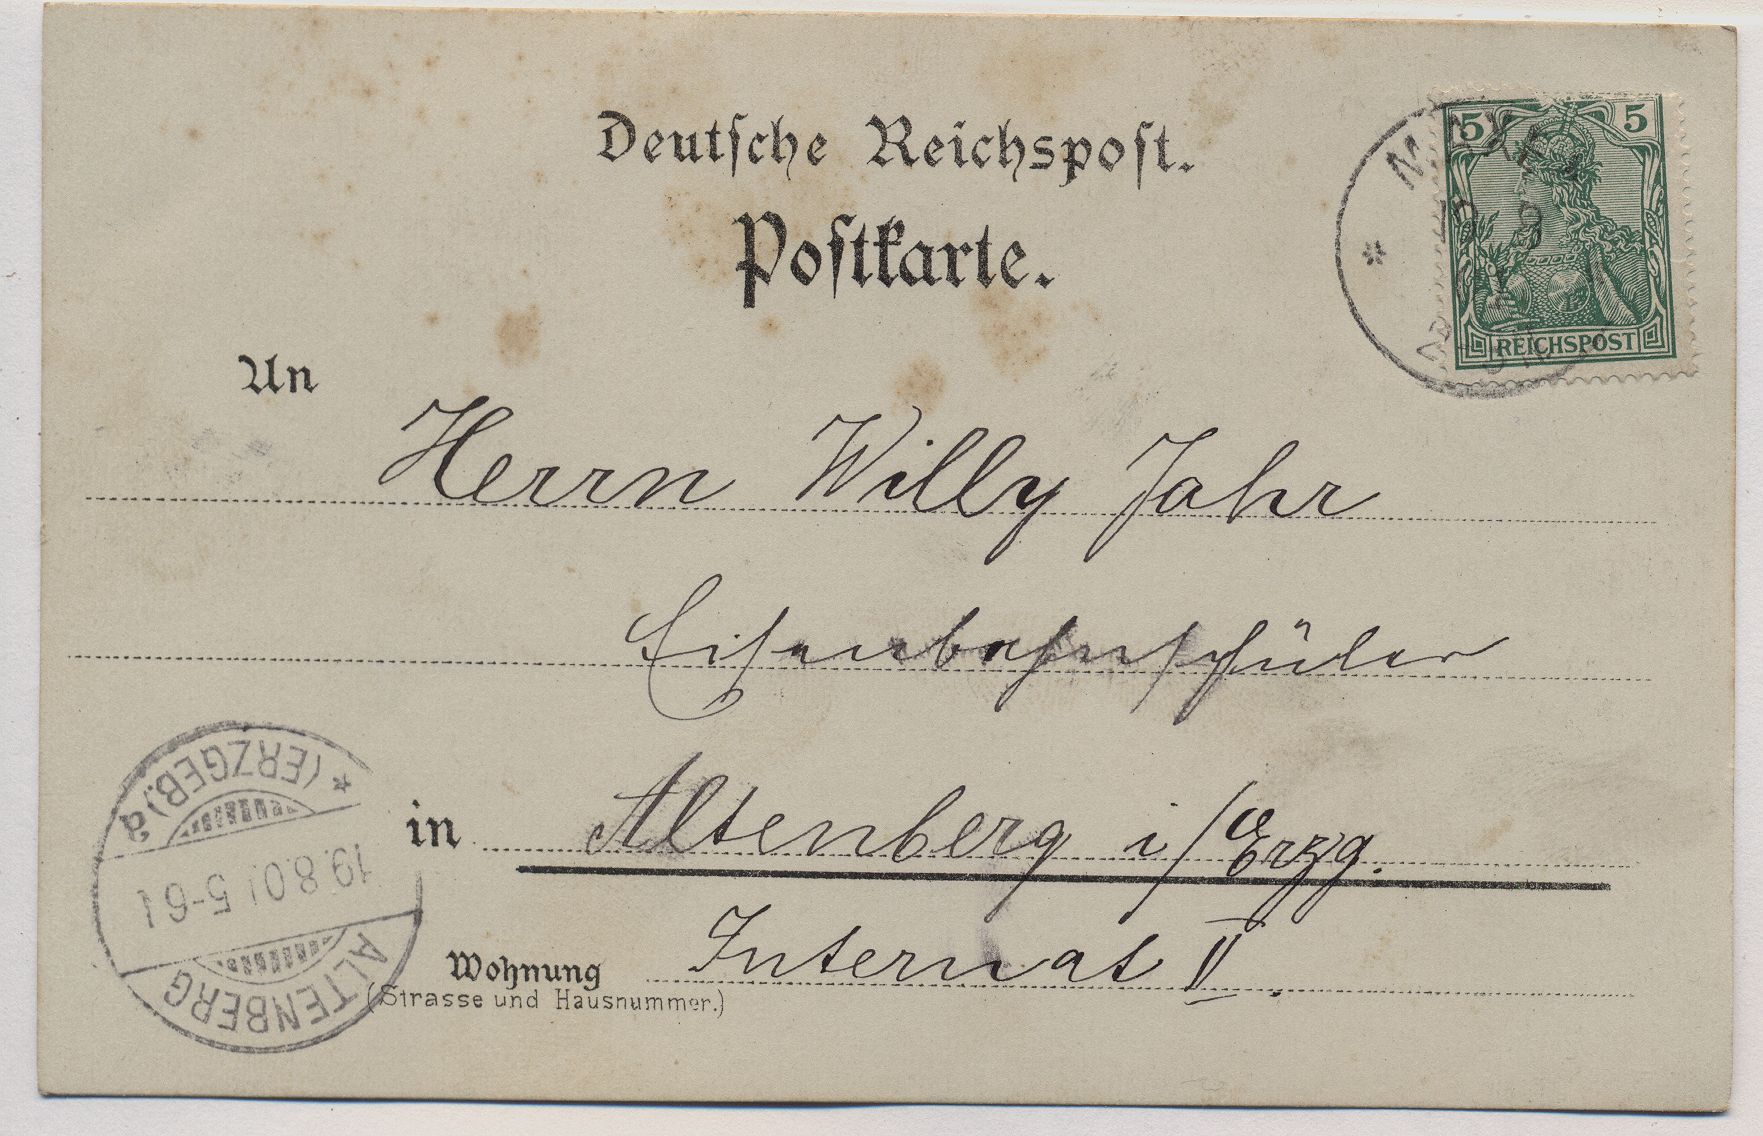 Deutsche Reichspost.
Postkarte.
5 5
REICHSPOST
MAXEN
An
Herrn Willy Jahr
Eisenbahnschüler
in Altenberg i/Erzg.
Wohnung Internat II.
(Strasse und Hausnummer.)
ALTENBERG
19.8.01 5-6
* (ERZGEB.) a